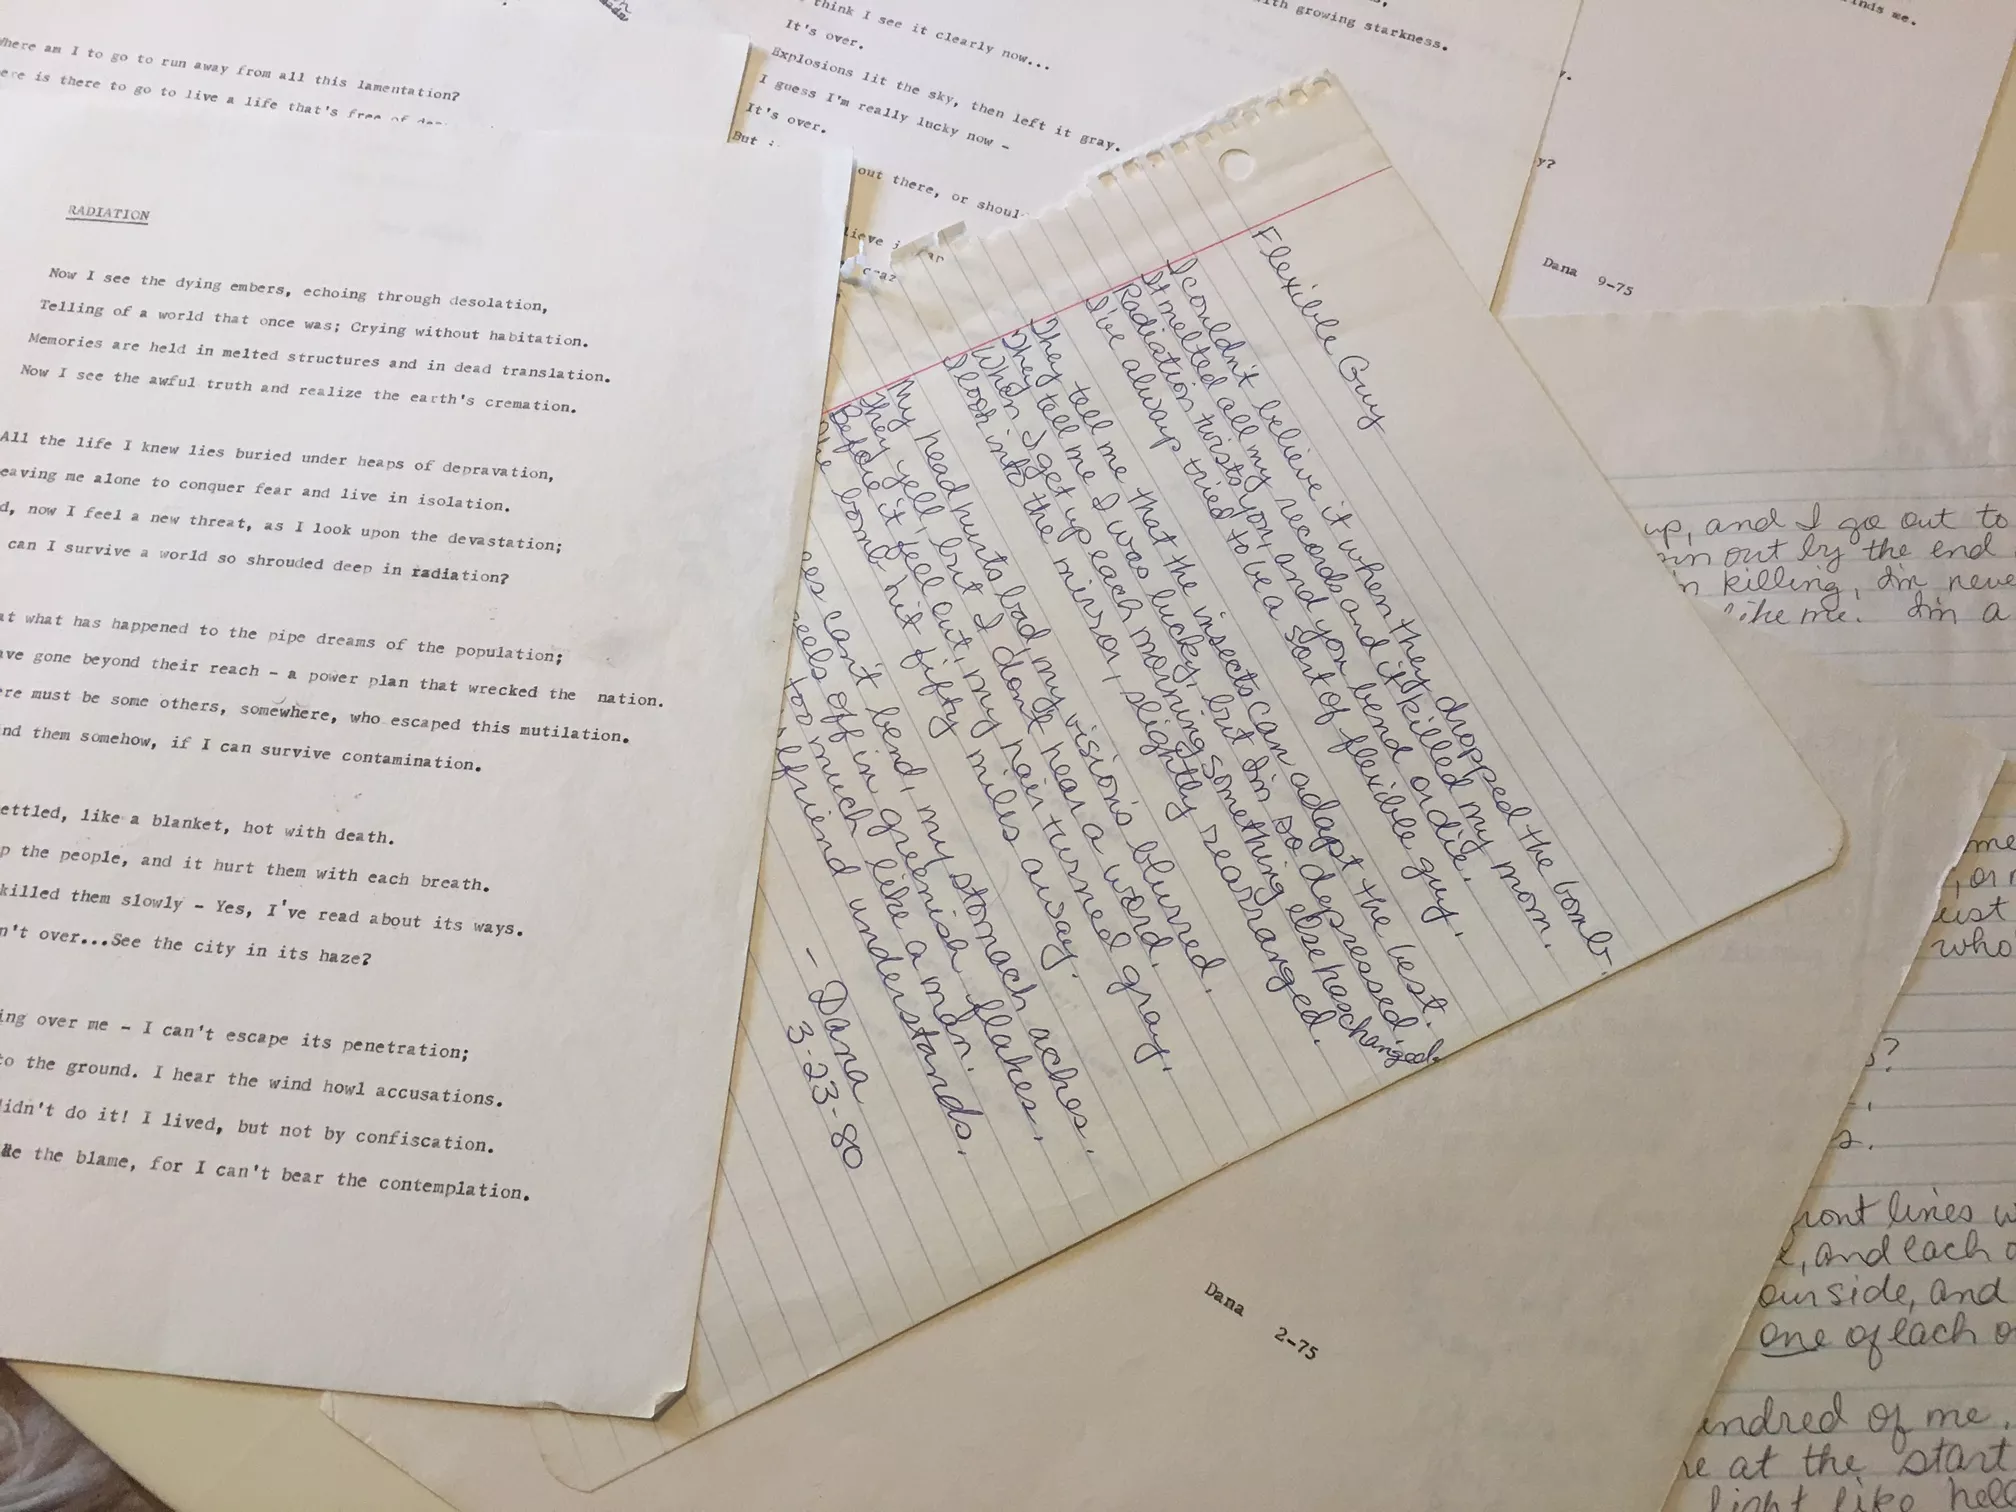 Where am I to go to run away from all this lamentation?
ere is there to go to live a life that's free of
RADIATION
Now I see the dying embers, echoing through desolation,
Telling of a world that once was; Crying without habitation.
Memories are held in melted structures and in dead translation.
Now I see the awful truth and realize the earth's cremation.
All the life I knew lies buried under heaps of depravation,
eaving me alone to conquer fear and live in isolation.
d, now I feel a new threat, as I look upon the devastation;
can I survive a world so shrouded deep in radiation?
at what has happened to the pipe dreams of the population;
ave gone beyond their reach - a power plan that wrecked the nation.
ere must be some others, somewhere, who escaped this mutilation.
nd them somehow, if I can survive contamination.
ettled, like a blanket, hot with death.
p the people, and it hurt them with each breath.
killed them slowly - Yes, I've read about its ways.
n't over...See the city in its haze?
ing over me - I can't escape its penetration;
to the ground. I hear the wind howl accusations.
didn't do it! I lived, but not by confiscation.
the blame, for I can't bear the contemplation.
think I see it clearly now...
It's over.
Explosions lit the sky, then left it gray.
I guess I'm really lucky now -
It's over.
But
out there, or shoul
lieve
craz
ith growing starkness.
inds me.
y?
Dana 9-75
Flexible Guy
I couldn't believe it when they dropped the bomb.
It melted all my records and it killed my mom.
Radiation twists you, and you bend or die.
I've always tried to be a sort of flexible guy.
They tell me that the insects can adapt the best.
They tell me I was lucky, but I'm so depressed.
When I get up each morning something else has changed.
I look into the mirror, slightly rearranged.
My head hurts bad, my vision's blurred.
They yell, but I don't hear a word.
Before it fell out, my hair turned gray.
The bomb hit fifty miles away.
es can't bend, my stomach aches.
eels off in greenish flakes.
too much like a man.
lfriend understands.
- Dana
3-23-80
Dana 2-75
up, and I go out to
in out by the end
n killing, I'm neve
like me. I'm a
me
, or
ust
who
s?
s.
ront lines w
e, and each o
our side, and
one of each o
undred of me.
e at the start
light like hel